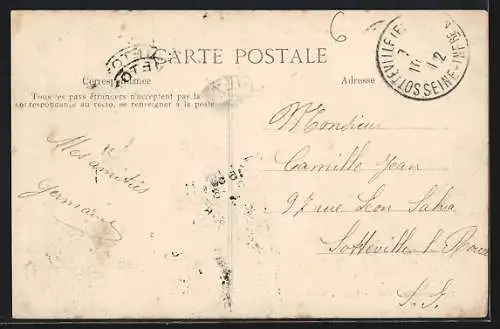 6
CARTE POSTALE
Correspondance
Tous les pays étrangers n'acceptent pas la
correspondance au recto, se renseigner à la poste
Mes amitiés
Germaine
Adresse
SOTTEVILLE
SEINE-INFRE
7
10
12
Monsieur
Camille Jean
97 rue Léon Salva
Sotteville l. Rouen
S. I.